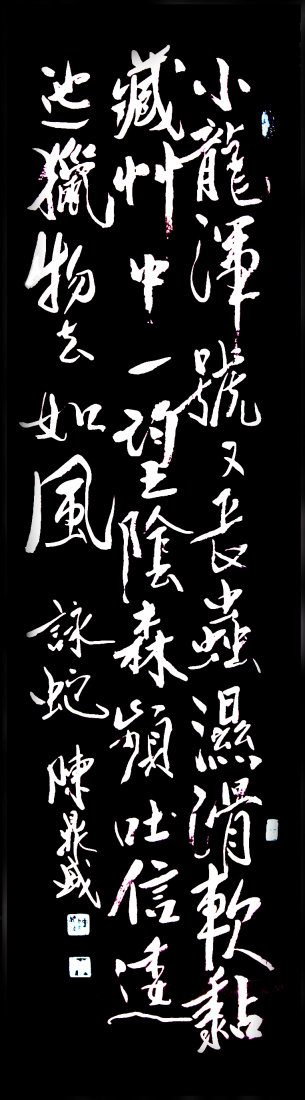 小龍渾號又長蟲濕滑軟黏
藏艸中一望陰森頻吐信逶
迤獵物去如風 詠蛇 陳鼎盛